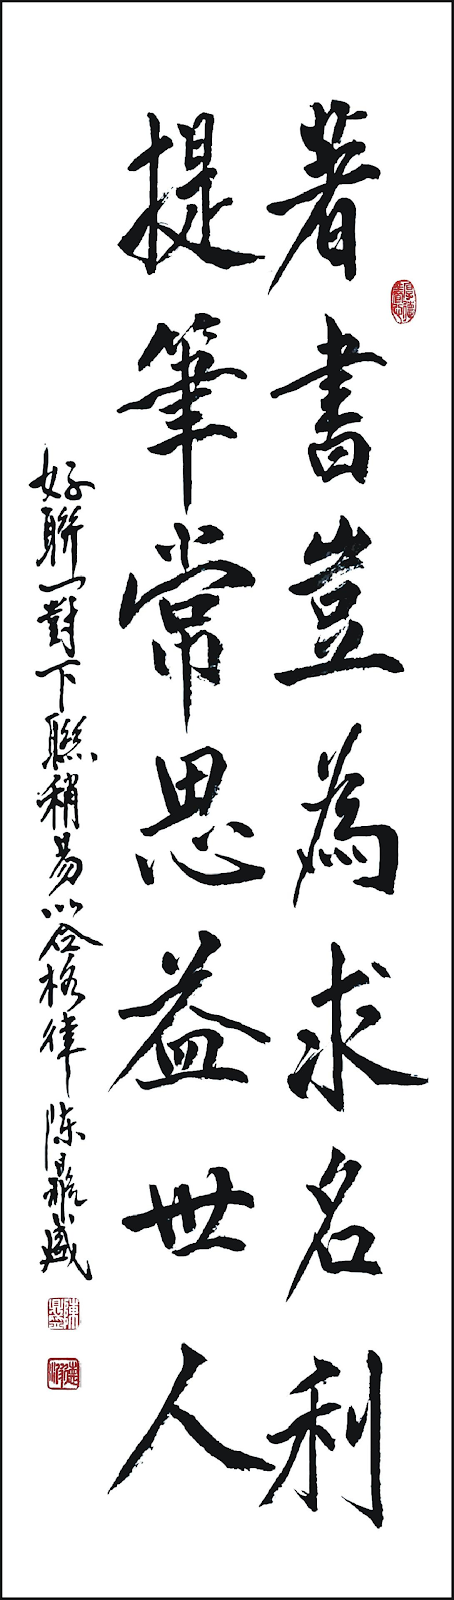 著書豈為求名利
提筆常思益世人
好聯一對下聯稍易以合格律 陳鼎盛